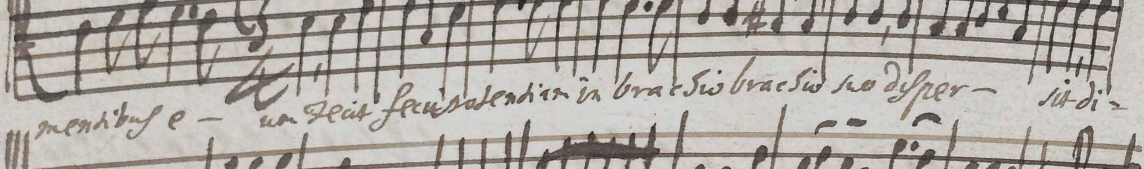 mentibus e - um fecit fecit potentiam in brachio brachio suo disper - sit di-